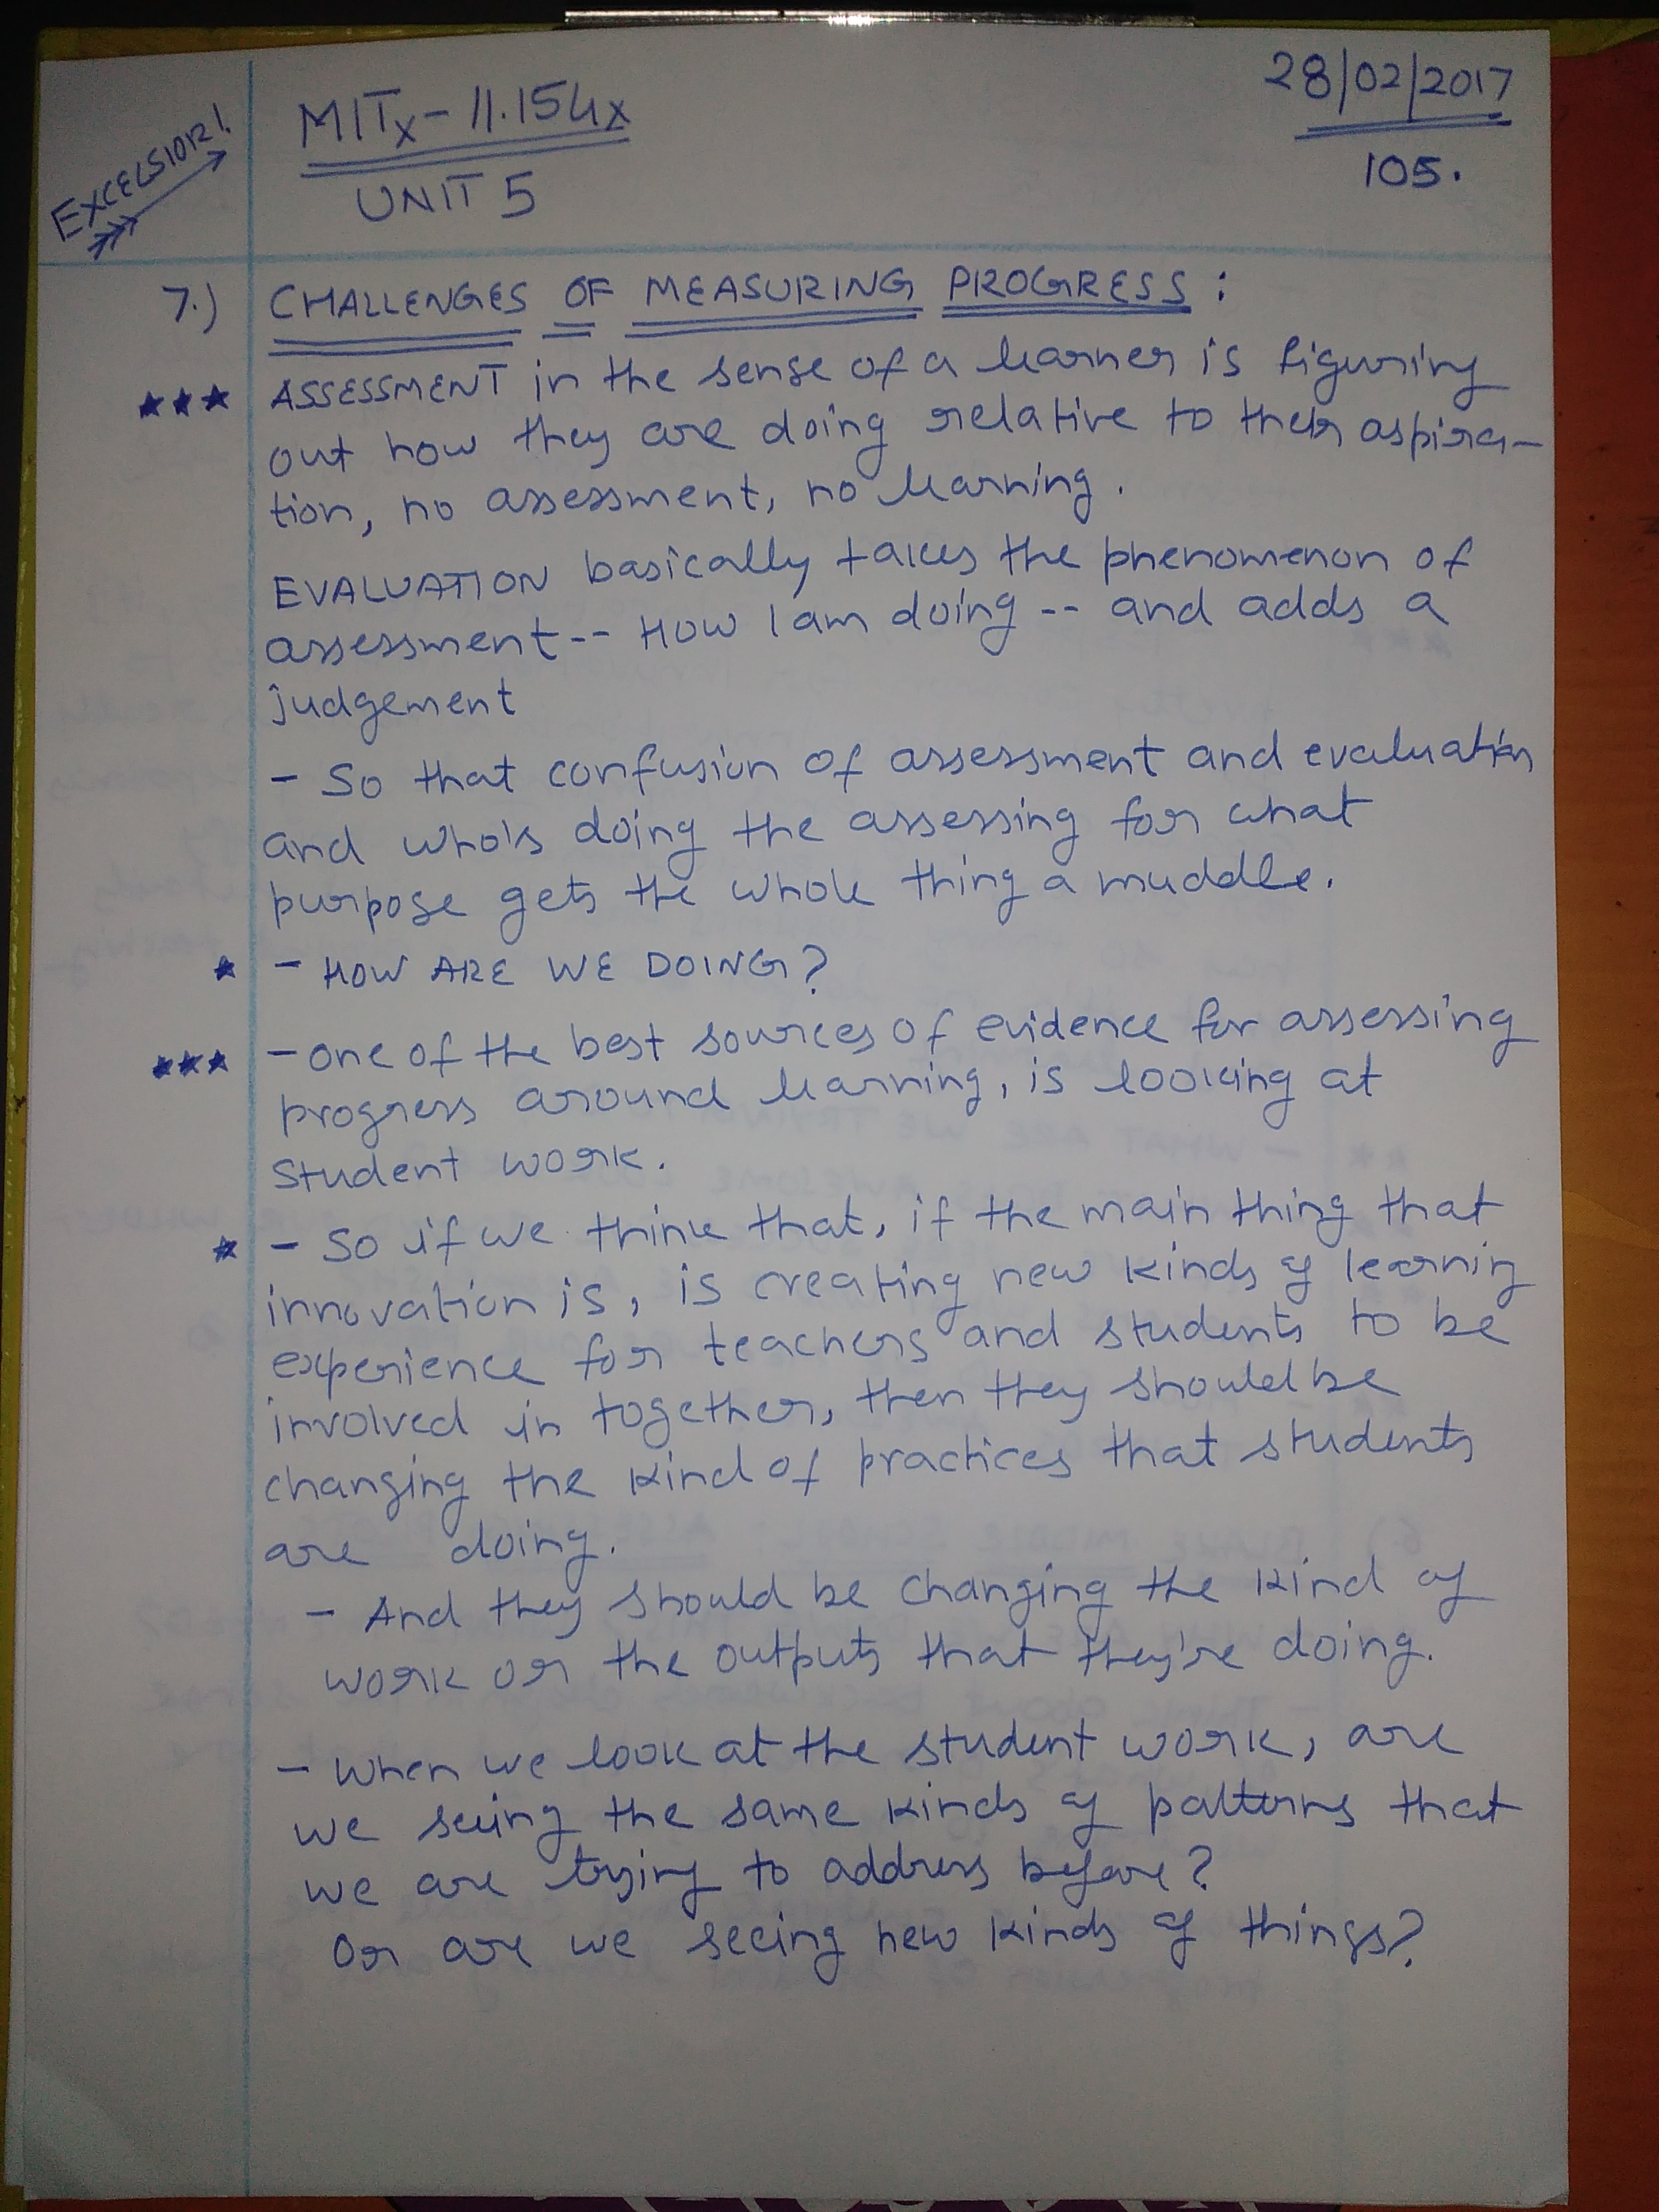 EXCELSIOR!
MITx - 11.154x
28/02/2017
UNIT 5
105.
7.) CHALLENGES OF MEASURING PROGRESS :
★★★ ASSESSMENT in the sense of a learner is figuring
out how they are doing relative to their aspira-
tion, no assessment, no learning.
EVALUATION basically takes the phenomenon of
assessment -- How I am doing -- and adds a
judgement
- So that confusion of assessment and evaluation
and who's doing the assessing for what
purpose gets the whole thing a muddle.
★ - HOW ARE WE DOING?
★★★ - One of the best sources of evidence for assessing
progress around learning, is looking at
student work.
★ - So if we think that, if the main thing that
innovation is, is creating new kinds of learning
experience for teachers and students to be
involved in together, then they should be
changing the kind of practices that students
are doing.
- And they should be changing the kind of
work or the outputs that they're doing.
- When we look at the student work, are
we seeing the same kinds of patterns that
we are trying to address before?
Or are we seeing new kinds of things?